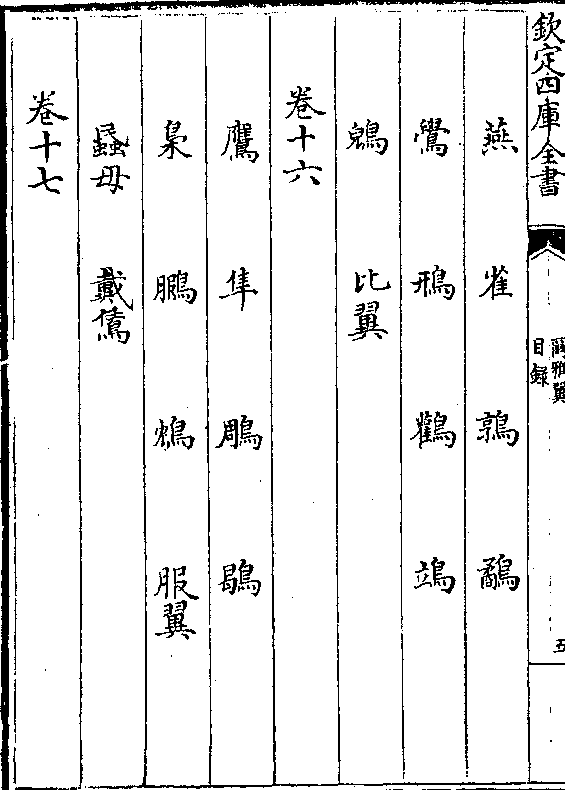 欽定四庫全書
爾雅翼
目録
五
燕 雀 鶉 鷸
鷽 鳽 鸛 鴗
鶂 比翼
卷十六
鷹 隼 鵰 鶡
梟 鵩 鴆 服翼
蟁母 戴
卷十七